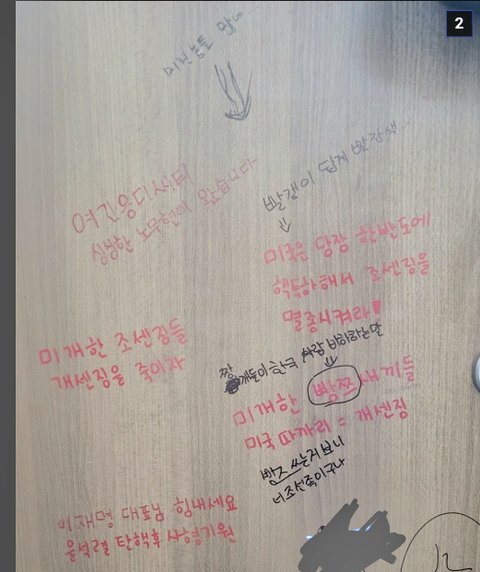 2
미친놈들 많네...
여긴응디시티
싱싱한 노무현이 있습니다
빨갱이 답게 빨간색...
미국은 당장 한반도에
핵투하해서 조센징을
멸종시켜라!
미개한 조센징들
개센징을 죽이자
짱개들이 한국 사람 비하하는 말
미개한 빵쯔 새끼들
미국 따까리 = 개센징
빵즈 쓰는거 보니
너 조선족이구나
이재명 대표님 힘내세요
윤석열 탄핵후 사형기원